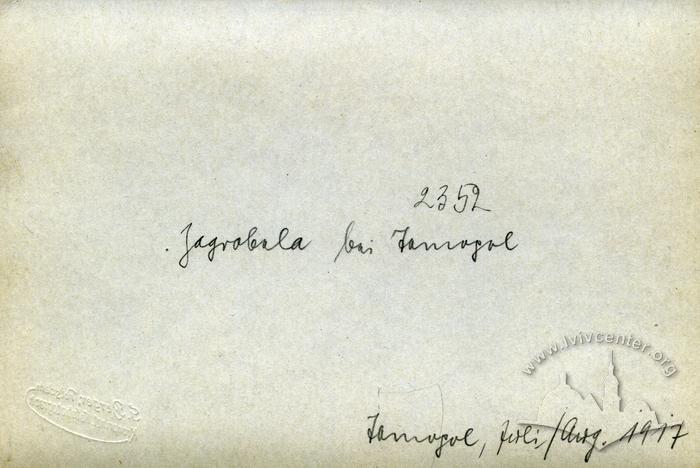 2352
Zagrobela bei Tarnopol
www.lvivcenter.org
Tarnopol, Juli/Aug. 1917